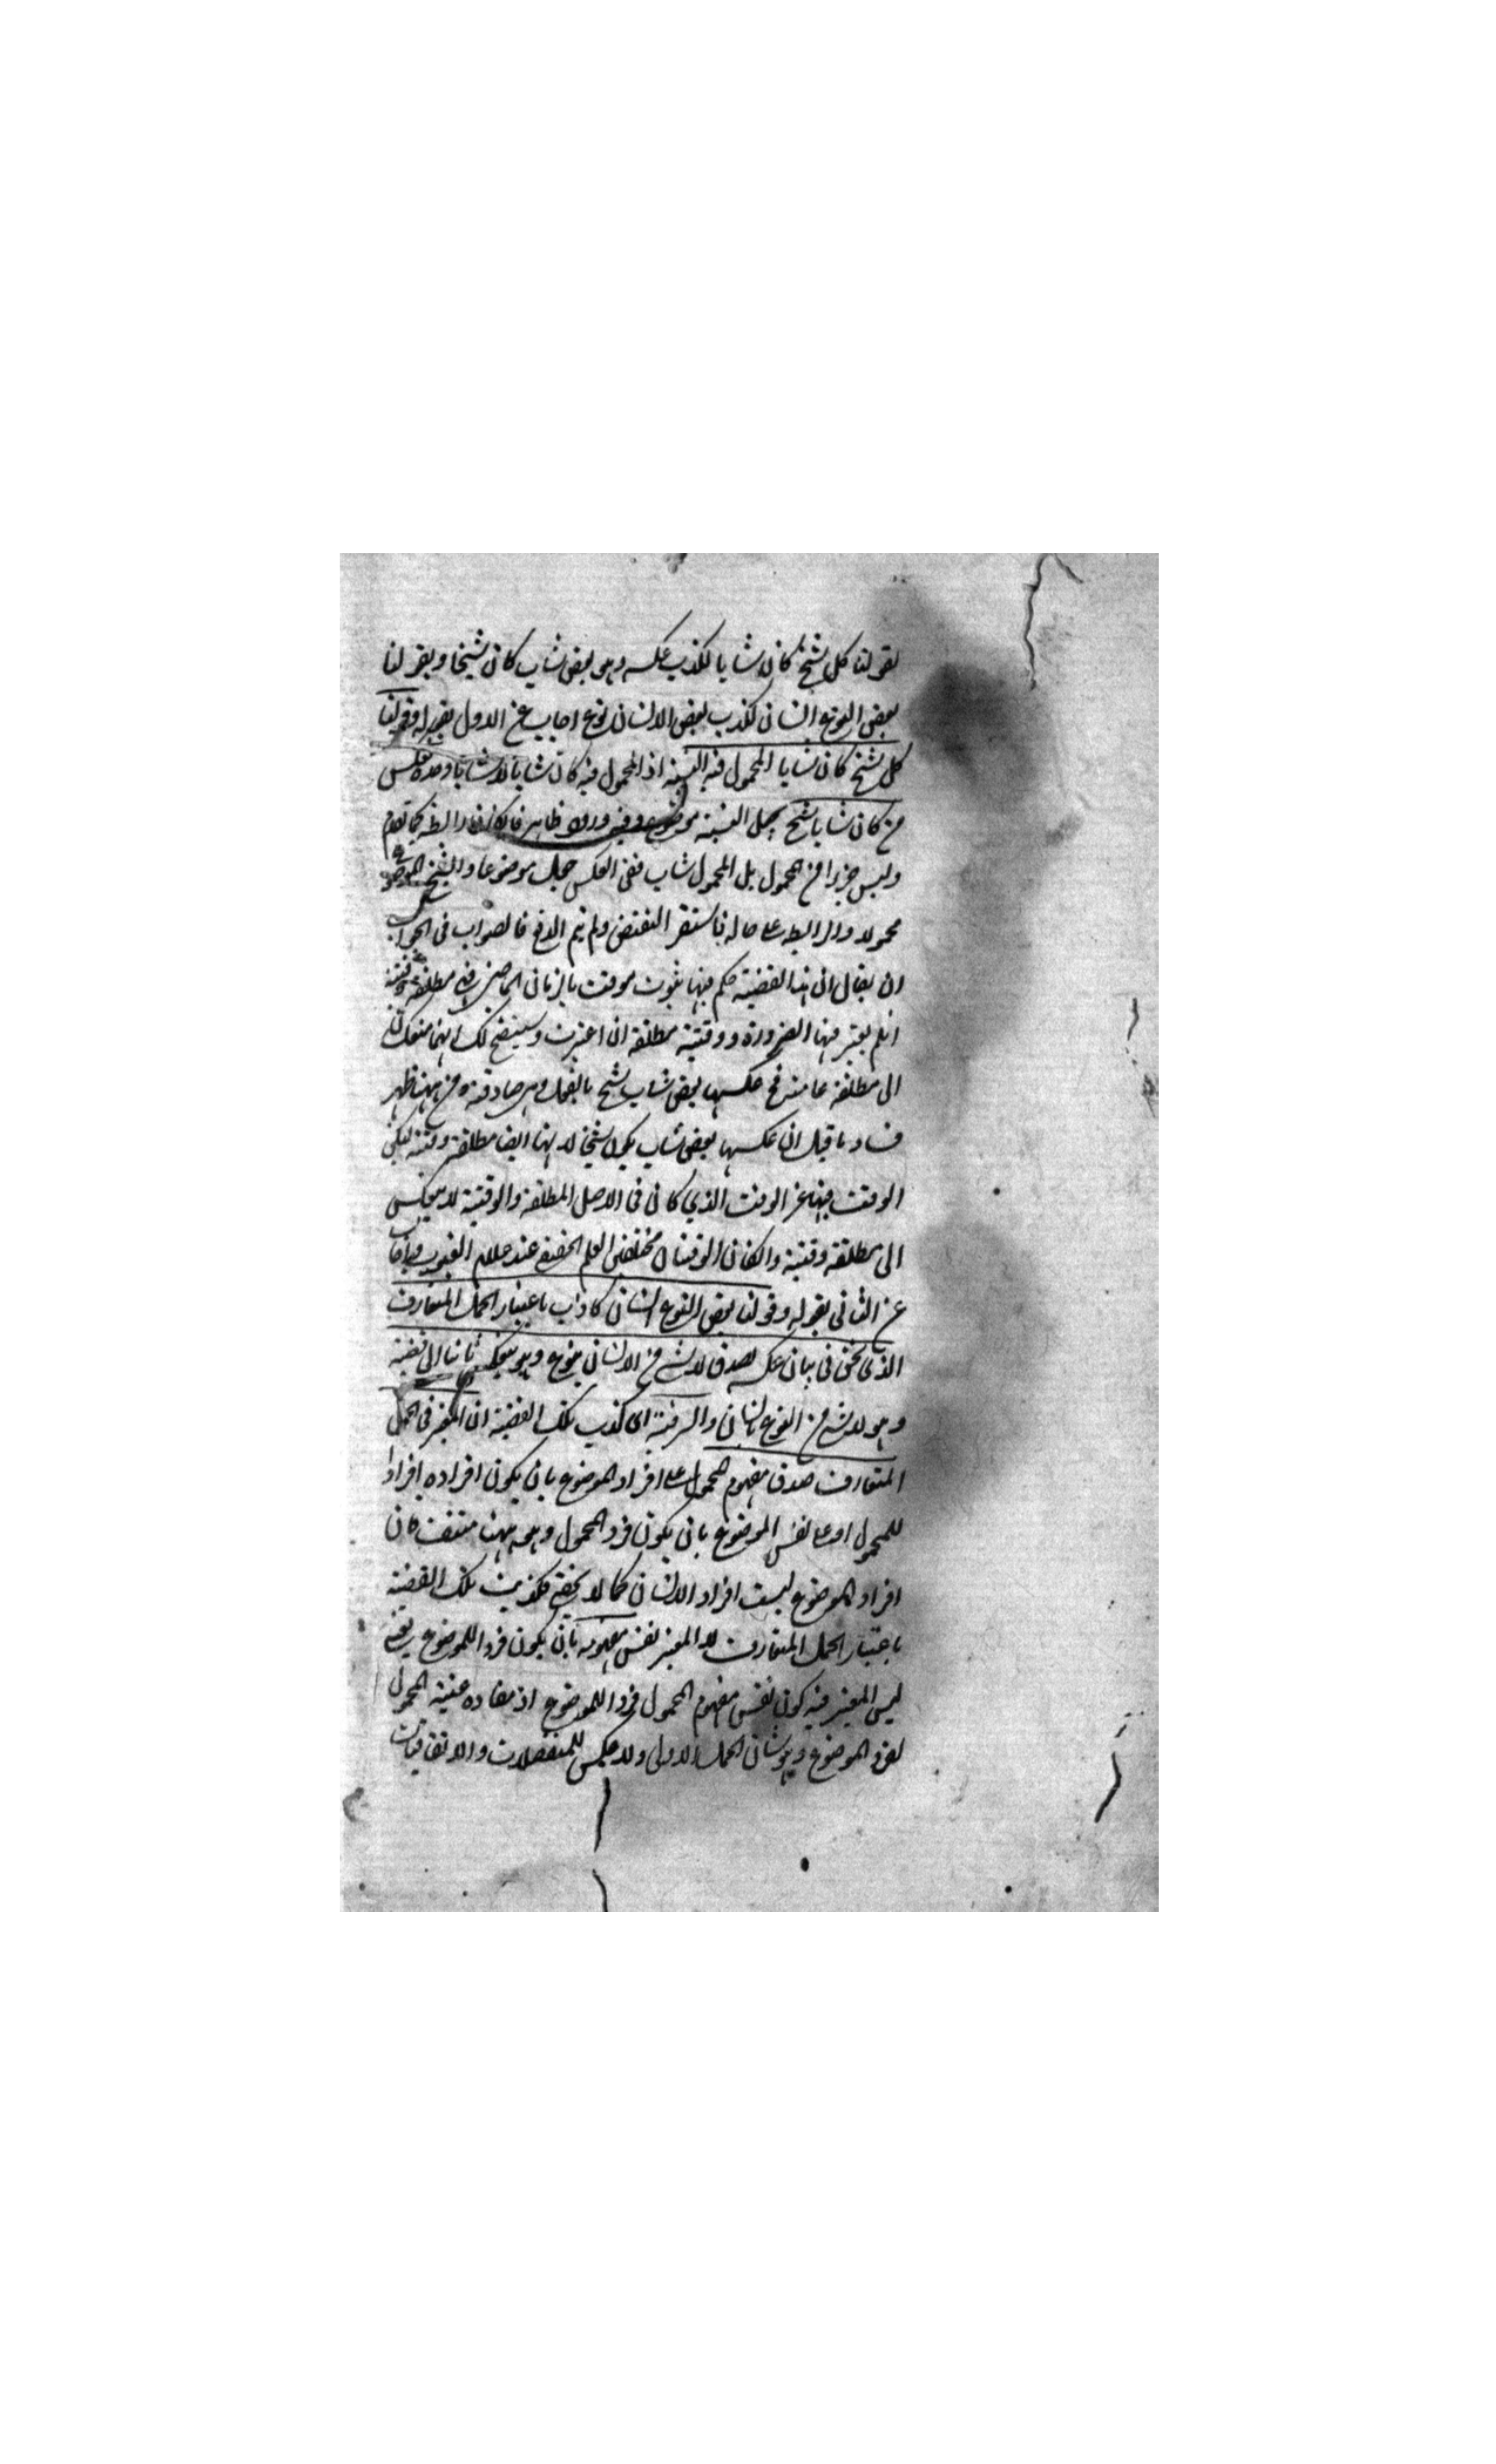 بقولنا كل شيخ كان شابا لكذب عكسه وهو بعض شاب كان شيخا وبقولنا
بعض النوع انسان لكذب بعض الانسان نوع اجاب عن الاول بقوله وقولنا
كل شيخ كان شابا المحمول فيه النسبة اذ المحمول فيه كان شابا لا شابا وحده فعكس
من كان شابا شيخ بجعل النسبة وفيه ظاهر فان كان رابطة كما تقدم
وليس جزءا من المحمول بل المحمول شاب ففي العكس جعل موضوعا والشيخ الموضوع
محمولا والرابطة على حاله فاستقر النقض ولم يتم الدفع فالصواب في الجواب
ان يقال ان هذا القضية حكم فيها بثبوت موقت بالزمان الماضي فهي مطلقة وقتية
ان لم يعتبر فيها الضرورة ووقتية مطلقة ان اعتبرت وسيتضح لك انهما منعكستان
الى مطلقة عامة فح عكسها بعض شاب شيخ بالفعل وهي صادقة ومن ههنا ظهر
فساد ما قيل ان عكسها بعض شاب يكون شيخا لانها ايضا مطلقة وقتية لكن
الوقت فيها غير الوقت الذي كان في الاصل المطلقة والوقتية لا ينعكس
الى مطلقة وقتية والكان الوقتان مختلفين العلم الحقيقي عند علام الغيوب واجاب
عن الثاني بقوله وقولنا بعض النوع انسان كاذب باعتبار الحمل المتعارف
الذي نحن في بيان عكسه لصدق لا شيء من الانسان بنوع وهو ينعكس الى قضية
وهو لا شيء من النوع بانسان والسر فيه اي كذب تلك القضية ان المعتبر في الحمل
المتعارف صدق مفهوم المحمول على افراد الموضوع بان يكون افراده افرادا
للمحمول او على نفس الموضوع بان يكون فرد المحمول وهو ههنا منتف فان
افراد الموضوع ليست افراد الانسان كما لا يخفى فكذبت تلك القضية
باعتبار الحمل المتعارف لا المعتبر نفس مفهومه بان يكون فردا للموضوع يعني
ليس المعتبر فيه كون نفس مفهوم المحمول فردا للموضوع اذ مفاده عينية المحمول
لفرد الموضوع وهو شان الحمل الاولى ولا عكس للمنفصلات والاتفاقيات